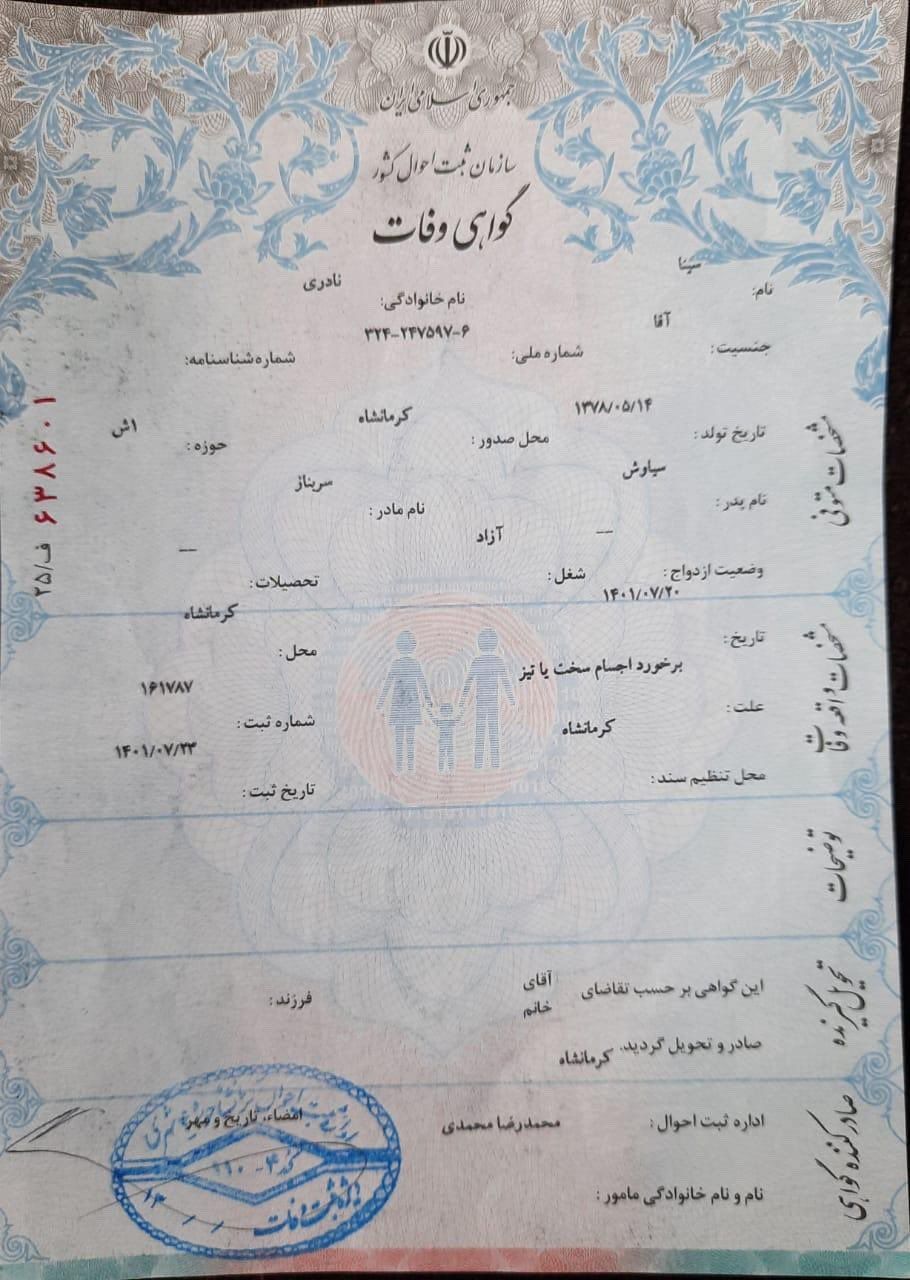 جمهوری اسلامی ایران
سازمان ثبت احوال کشور
گواهی وفات
نام: سینا
نام خانوادگی: نادری
جنسیت: آقا
شماره ملی: ۳۲۴-۲۴۷۵۹۷-۶
شماره شناسنامه:
تاریخ تولد: ۱۳۷۸/۰۵/۱۴
محل صدور: کرمانشاه
حوزه: اش
نام پدر: سیاوش
نام مادر: سریناز
وضعیت ازدواج: —
شغل: آزاد
تحصیلات: —
مشخصات متوفی
تاریخ: ۱۴۰۱/۰۷/۲۰
محل: کرمانشاه
علت: برخورد اجسام سخت یا تیز
شماره ثبت: ۱۶۱۷۸۷
محل تنظیم سند: کرمانشاه
تاریخ ثبت: ۱۴۰۱/۰۷/۲۳
مشخصات واقعه وفات
توضیحات
این گواهی بر حسب تقاضای آقای خانم فرزند:
صادر و تحویل گردید.
تحویل گیرنده
اداره ثبت احوال: کرمانشاه
امضاء، تاریخ و مهر:
نام و نام خانوادگی مامور: محمدرضا محمدی
صادر کننده گواهی
ف/۲۵ ۶۳۸۶۰۱
ویژه ثبت وفات